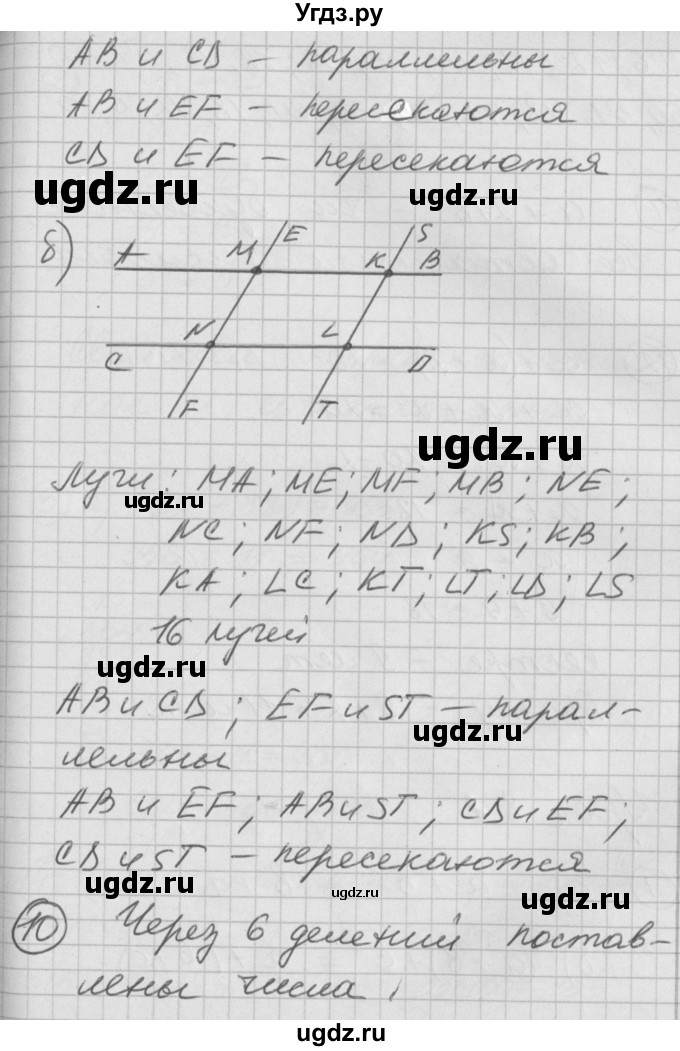 Угдз.ру
AB и CD – параллельны
AB и EF – пересекаются
CD и EF – пересекаются
ugdz.ru ugdz.ru
б)
E S
A M K B
N L
C D
F T
ugdz.ru
Лучи: MA; ME; MF; MB; NE;
ugdz.ru
NC; NF; ND; KS; KB;
KA; LC; KT; LT; LD; LS
16 лучей
ugdz.ru
AB и CD; EF и ST – парал-
ugdz.ru
лельны
AB и EF; AB и ST; CD и EF;
CD и ST – пересекаются
ugdz.ru ugdz.ru
ugdz.ru
10 Через 6 делений постав-
лены числа,
ugdz.ru